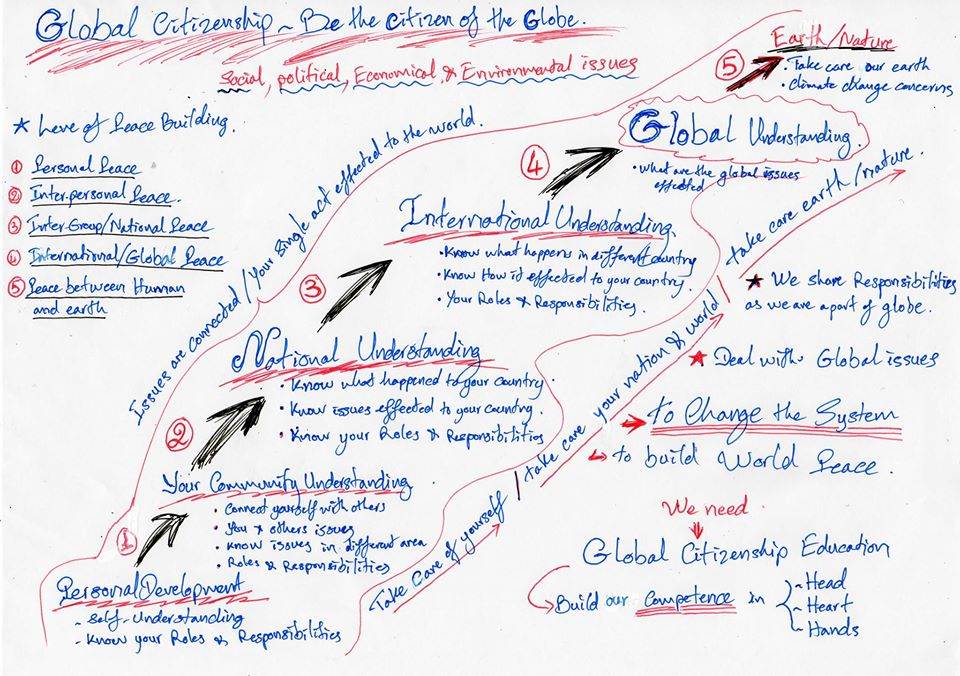 Global Citizenship ~ Be the citizen of the Globe.
Social, political, Economical, & Environmental issues
★ Leve of Peace Building.
① Personal Peace
② Inter-personal Peace.
③ Inter-Group/National Peace
④ International/Global Peace
⑤ Peace between Human
and earth
Issues are connected / Your single act effected to the world.
⑤ Earth/Nature
• Take care our earth
• Climate change concerns
④ Global Understanding.
• What are the global issues
effected
③ International Understanding
• Know what happens in different country
• Know How it effected to your country.
• Your Roles & Responsibilities.
② National Understanding
• Know what happened to your country
• Know issues effected to your country.
• Know your Roles & Responsibilities
① Your Community Understanding
• Connect yourself with others
• You & others issues
• Know issues in different area
• Roles & Responsibilities
Personal Development
- Self-Understanding
- Know your Roles & Responsibilities
Take Care of yourself / take care your nation & world / take care earth/nature.
★ We share Responsibilities
as we are apart of globe.
★ Deal with Global issues
→ to Change the System
↳ to build World Peace.
We need
Global Citizenship Education
Build our Competence in
- Head
- Heart
- Hands